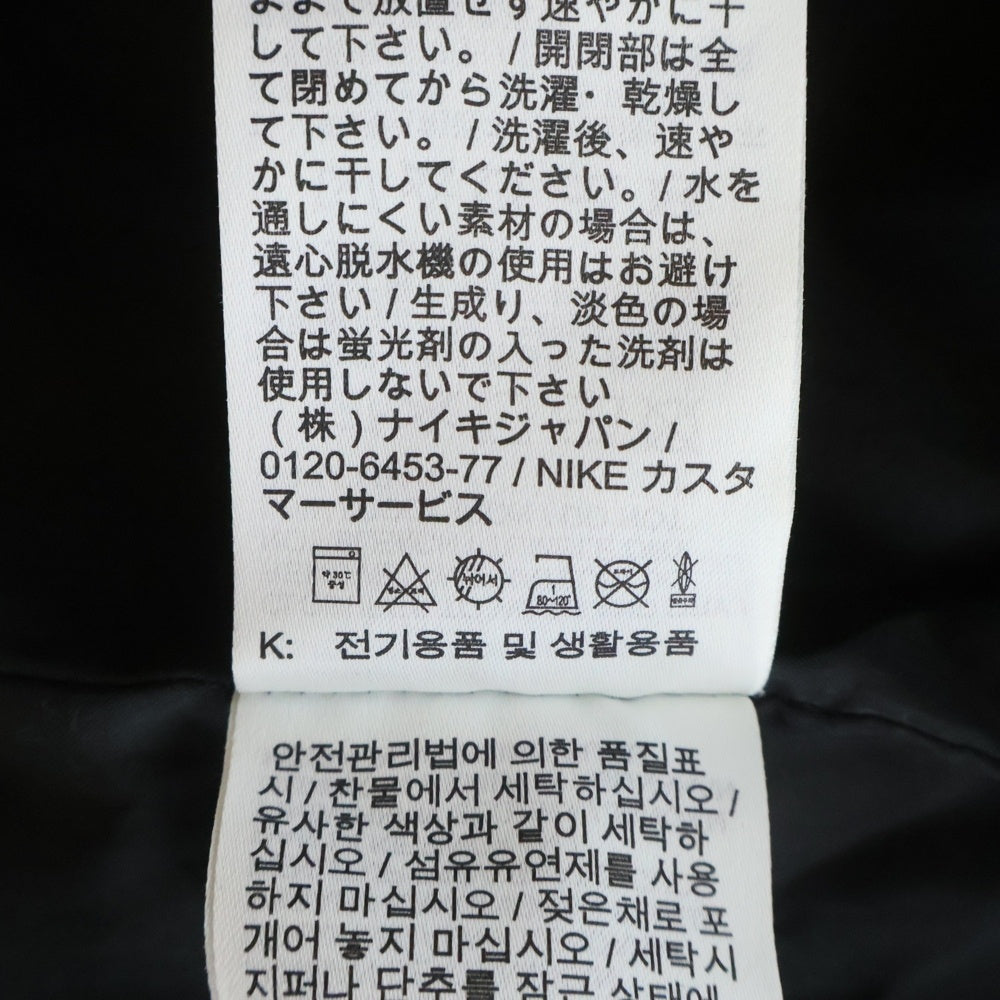 ままで放置せず速やかに干
して下さい。 / 開閉部は全
て閉めてから洗濯・ 乾燥し
て下さい。 / 洗濯後、速や
かに干してください。/ 水を
通しにくい素材の場合は、
遠心脱水機の使用はお避け
下さい / 生成り、淡色の場
合は蛍光剤の入った洗剤は
使用しないで下さい
(株) ナイキジャパン /
0120-6453-77 / NIKE カスタ
マーサービス
약 30℃
중성
염소표백
뉘어서
1
80~120°
드라이
K: 전기용품 및 생활용품
안전관리법에 의한 품질표
시 / 찬물에서 세탁하십시오 /
유사한 색상과 같이 세탁하
십시오 / 섬유유연제를 사용
하지 마십시오 / 젖은채로 포
개어 놓지 마십시오 / 세탁시
지퍼나 단추를 잠근 상태에